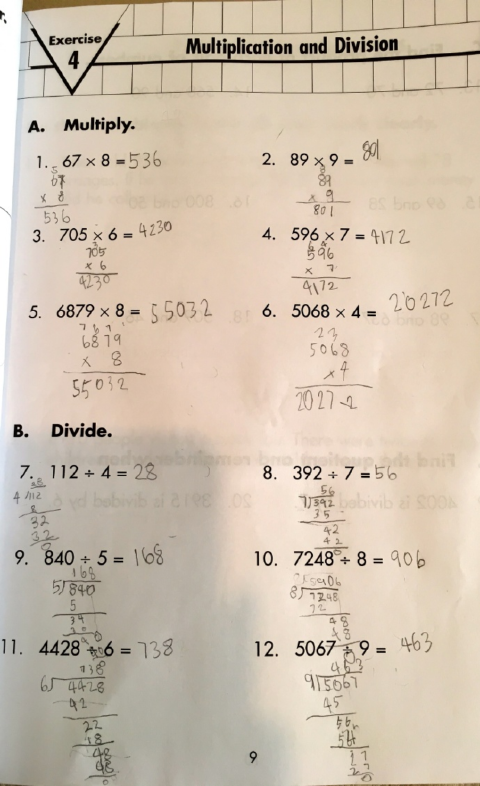 Exercise
4
Multiplication and Division
A. Multiply.
1. 67 × 8 = 536
5
67
× 8
536
2. 89 × 9 = 801
8
89
× 9
801
3. 705 × 6 = 4230
3
705
× 6
4230
4. 596 × 7 = 4172
6 4
596
× 7
4172
5. 6879 × 8 = 55032
7 6 7
6879
× 8
55032
6. 5068 × 4 = 20272
2 3
5068
× 4
20272
B. Divide.
7. 112 ÷ 4 = 28
28
4 112
8
32
32
0
8. 392 ÷ 7 = 56
56
7 392
35
42
42
0
9. 840 ÷ 5 = 168
168
5 840
5
34
10. 7248 ÷ 8 = 906
906
8 7248
72
48
48
11. 4428 ÷ 6 = 738
738
6 4428
42
22
18
48
48
0
12. 5067 ÷ 9 = 463
463
9 5067
45
56
54
27
0
9